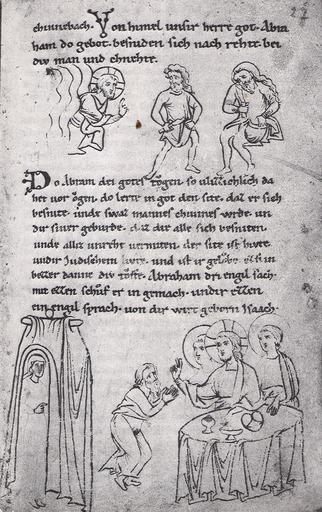 27
chunnebach. Von himel unsir herre got. Abra
ham do gebot. besniden sich nach rehte. bei
div man und chnehte.
Do Abram dei gotes tŏgen so vlizichlich da
het vor ŏgen. do lerte in got den site. daz er sich
besnite. unde swaz mannes chunnes wrde. un
dir siner geburde. daz die alle sich besniten.
unde alliz unreht vermiten. der site ist hivte.
undir Judischem livte. und ist ir gelŏbe. ez si in
bezzer danne div tŏffe. Abraham dri engil sach.
mit ezzen schuf er in gemach. undir ezzen
ein engil sprach. von dir wirt geborn Isaach.